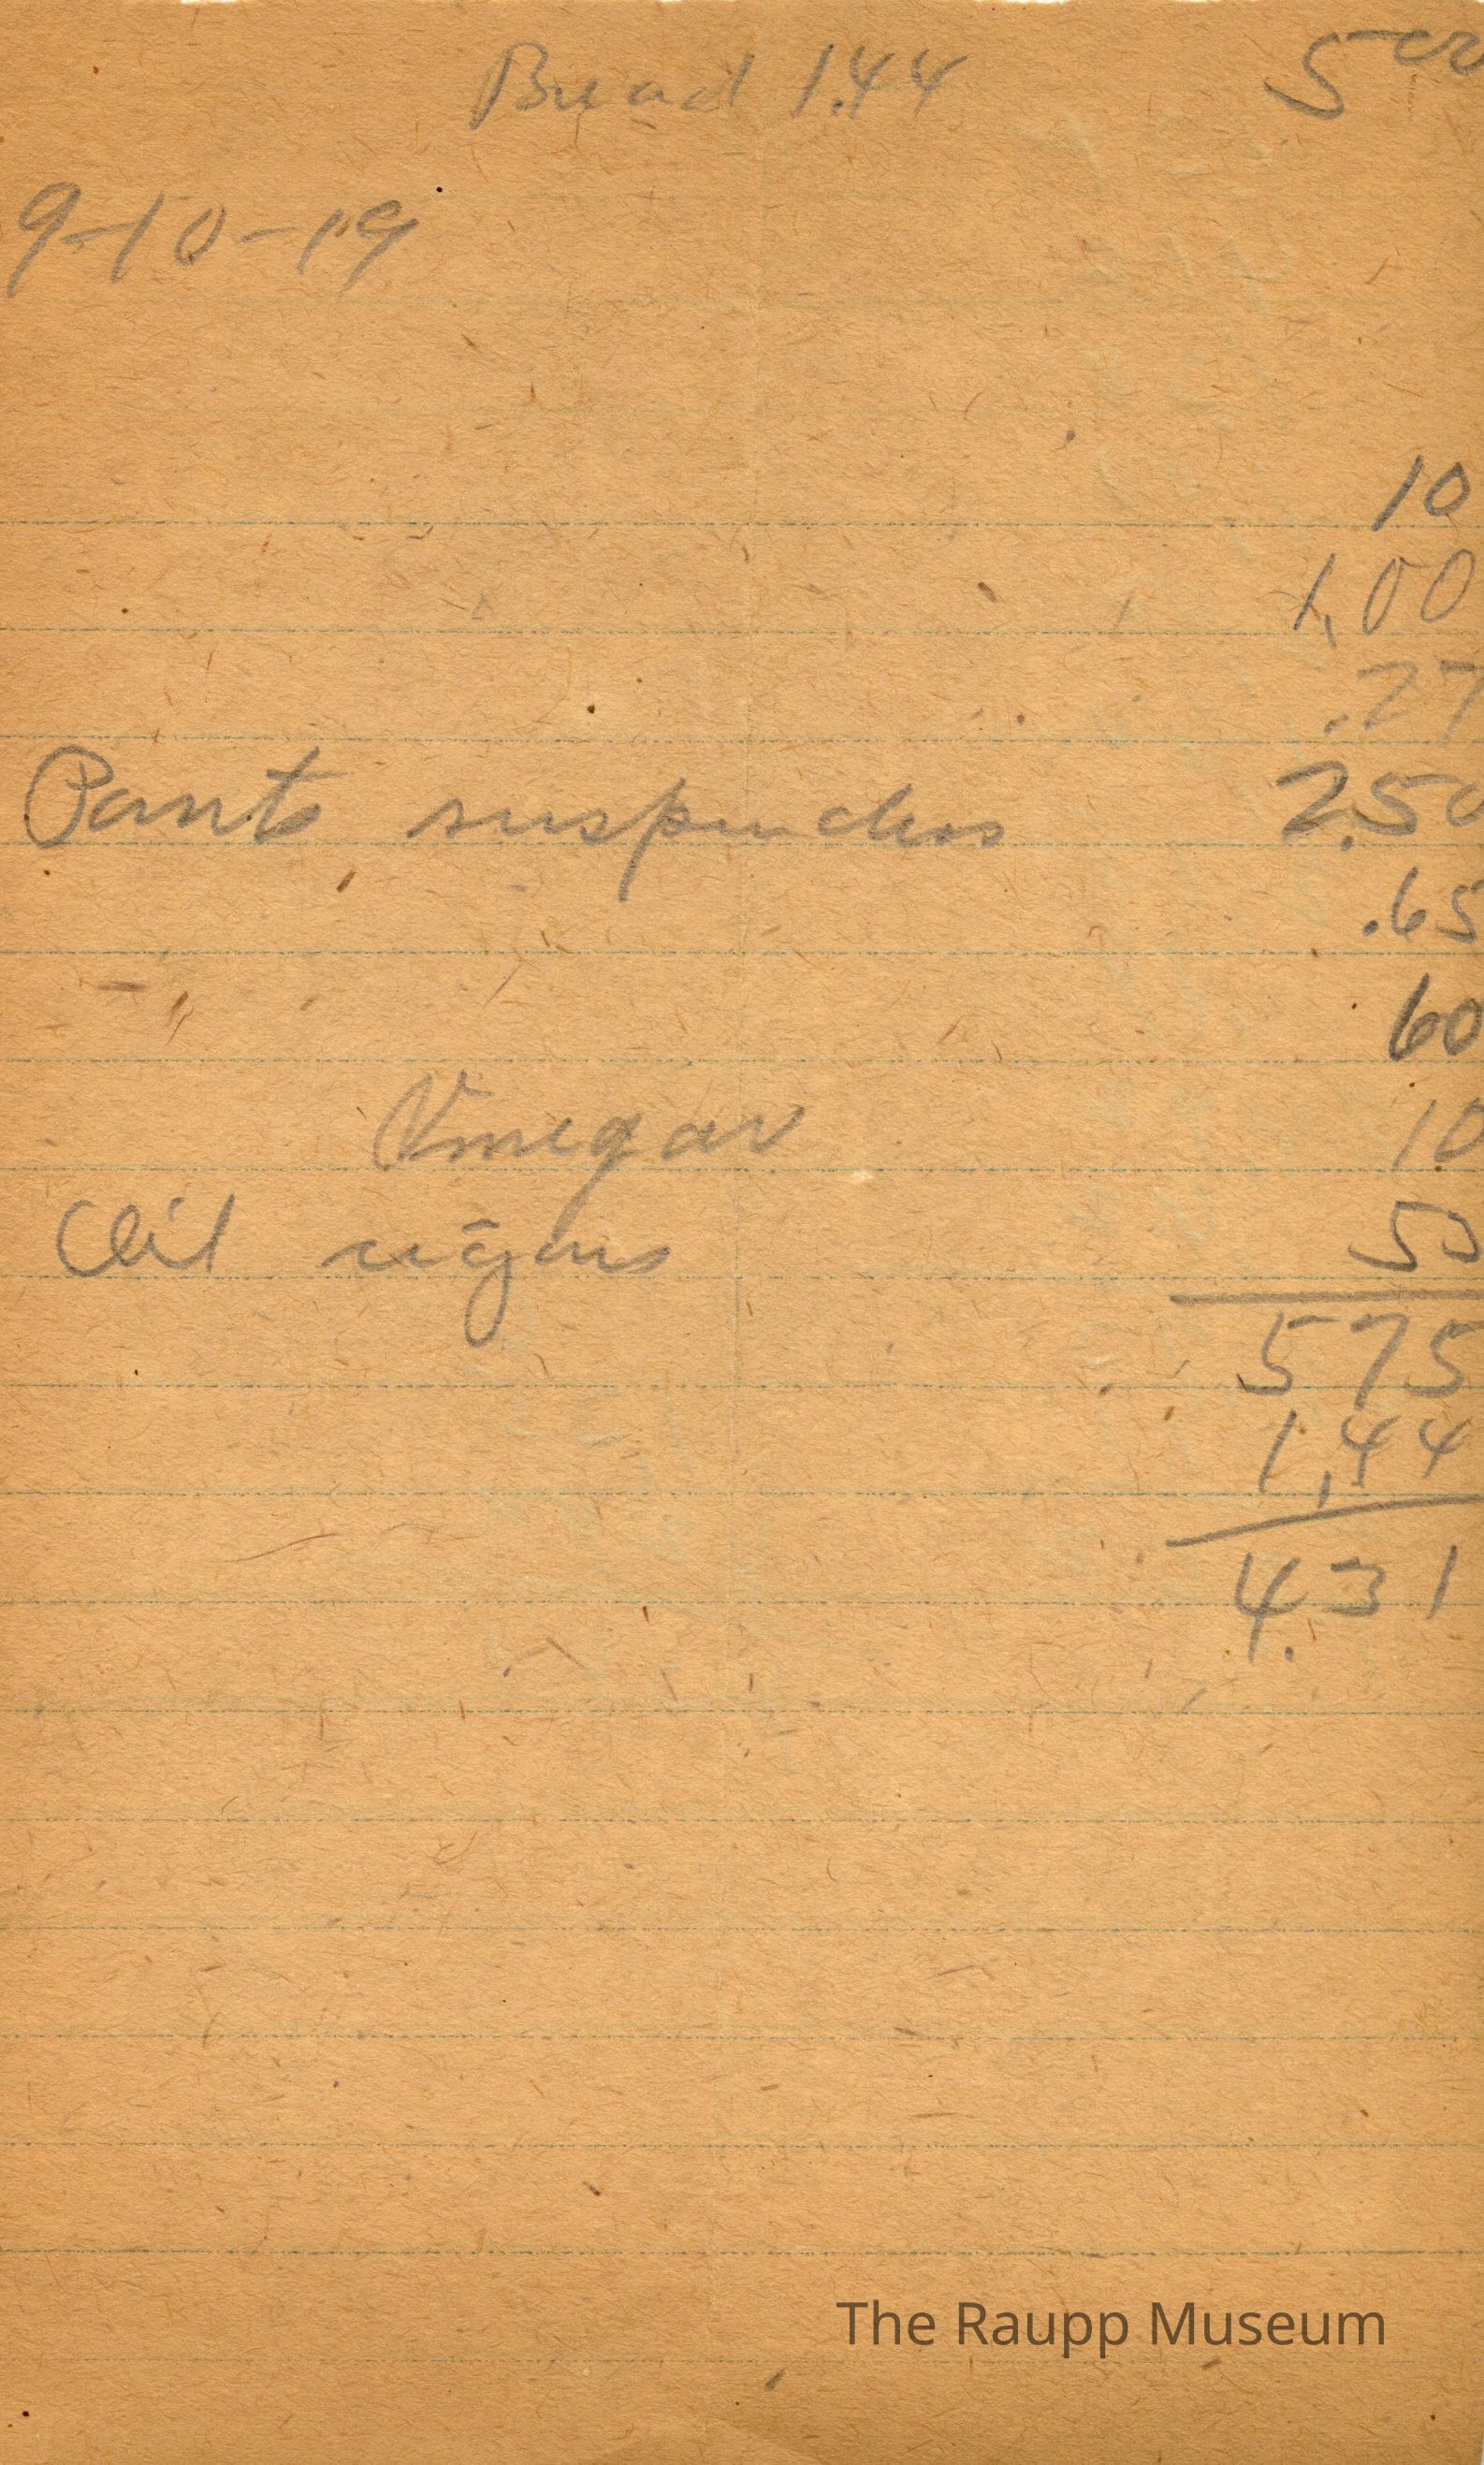 Bread 1.44 5 00
9-10-19
10
1.00
.27
Pants suspenders 2.50
.65
60
Vinegar 10
Oil cigars 53
575
1.44
4.31
The Raupp Museum